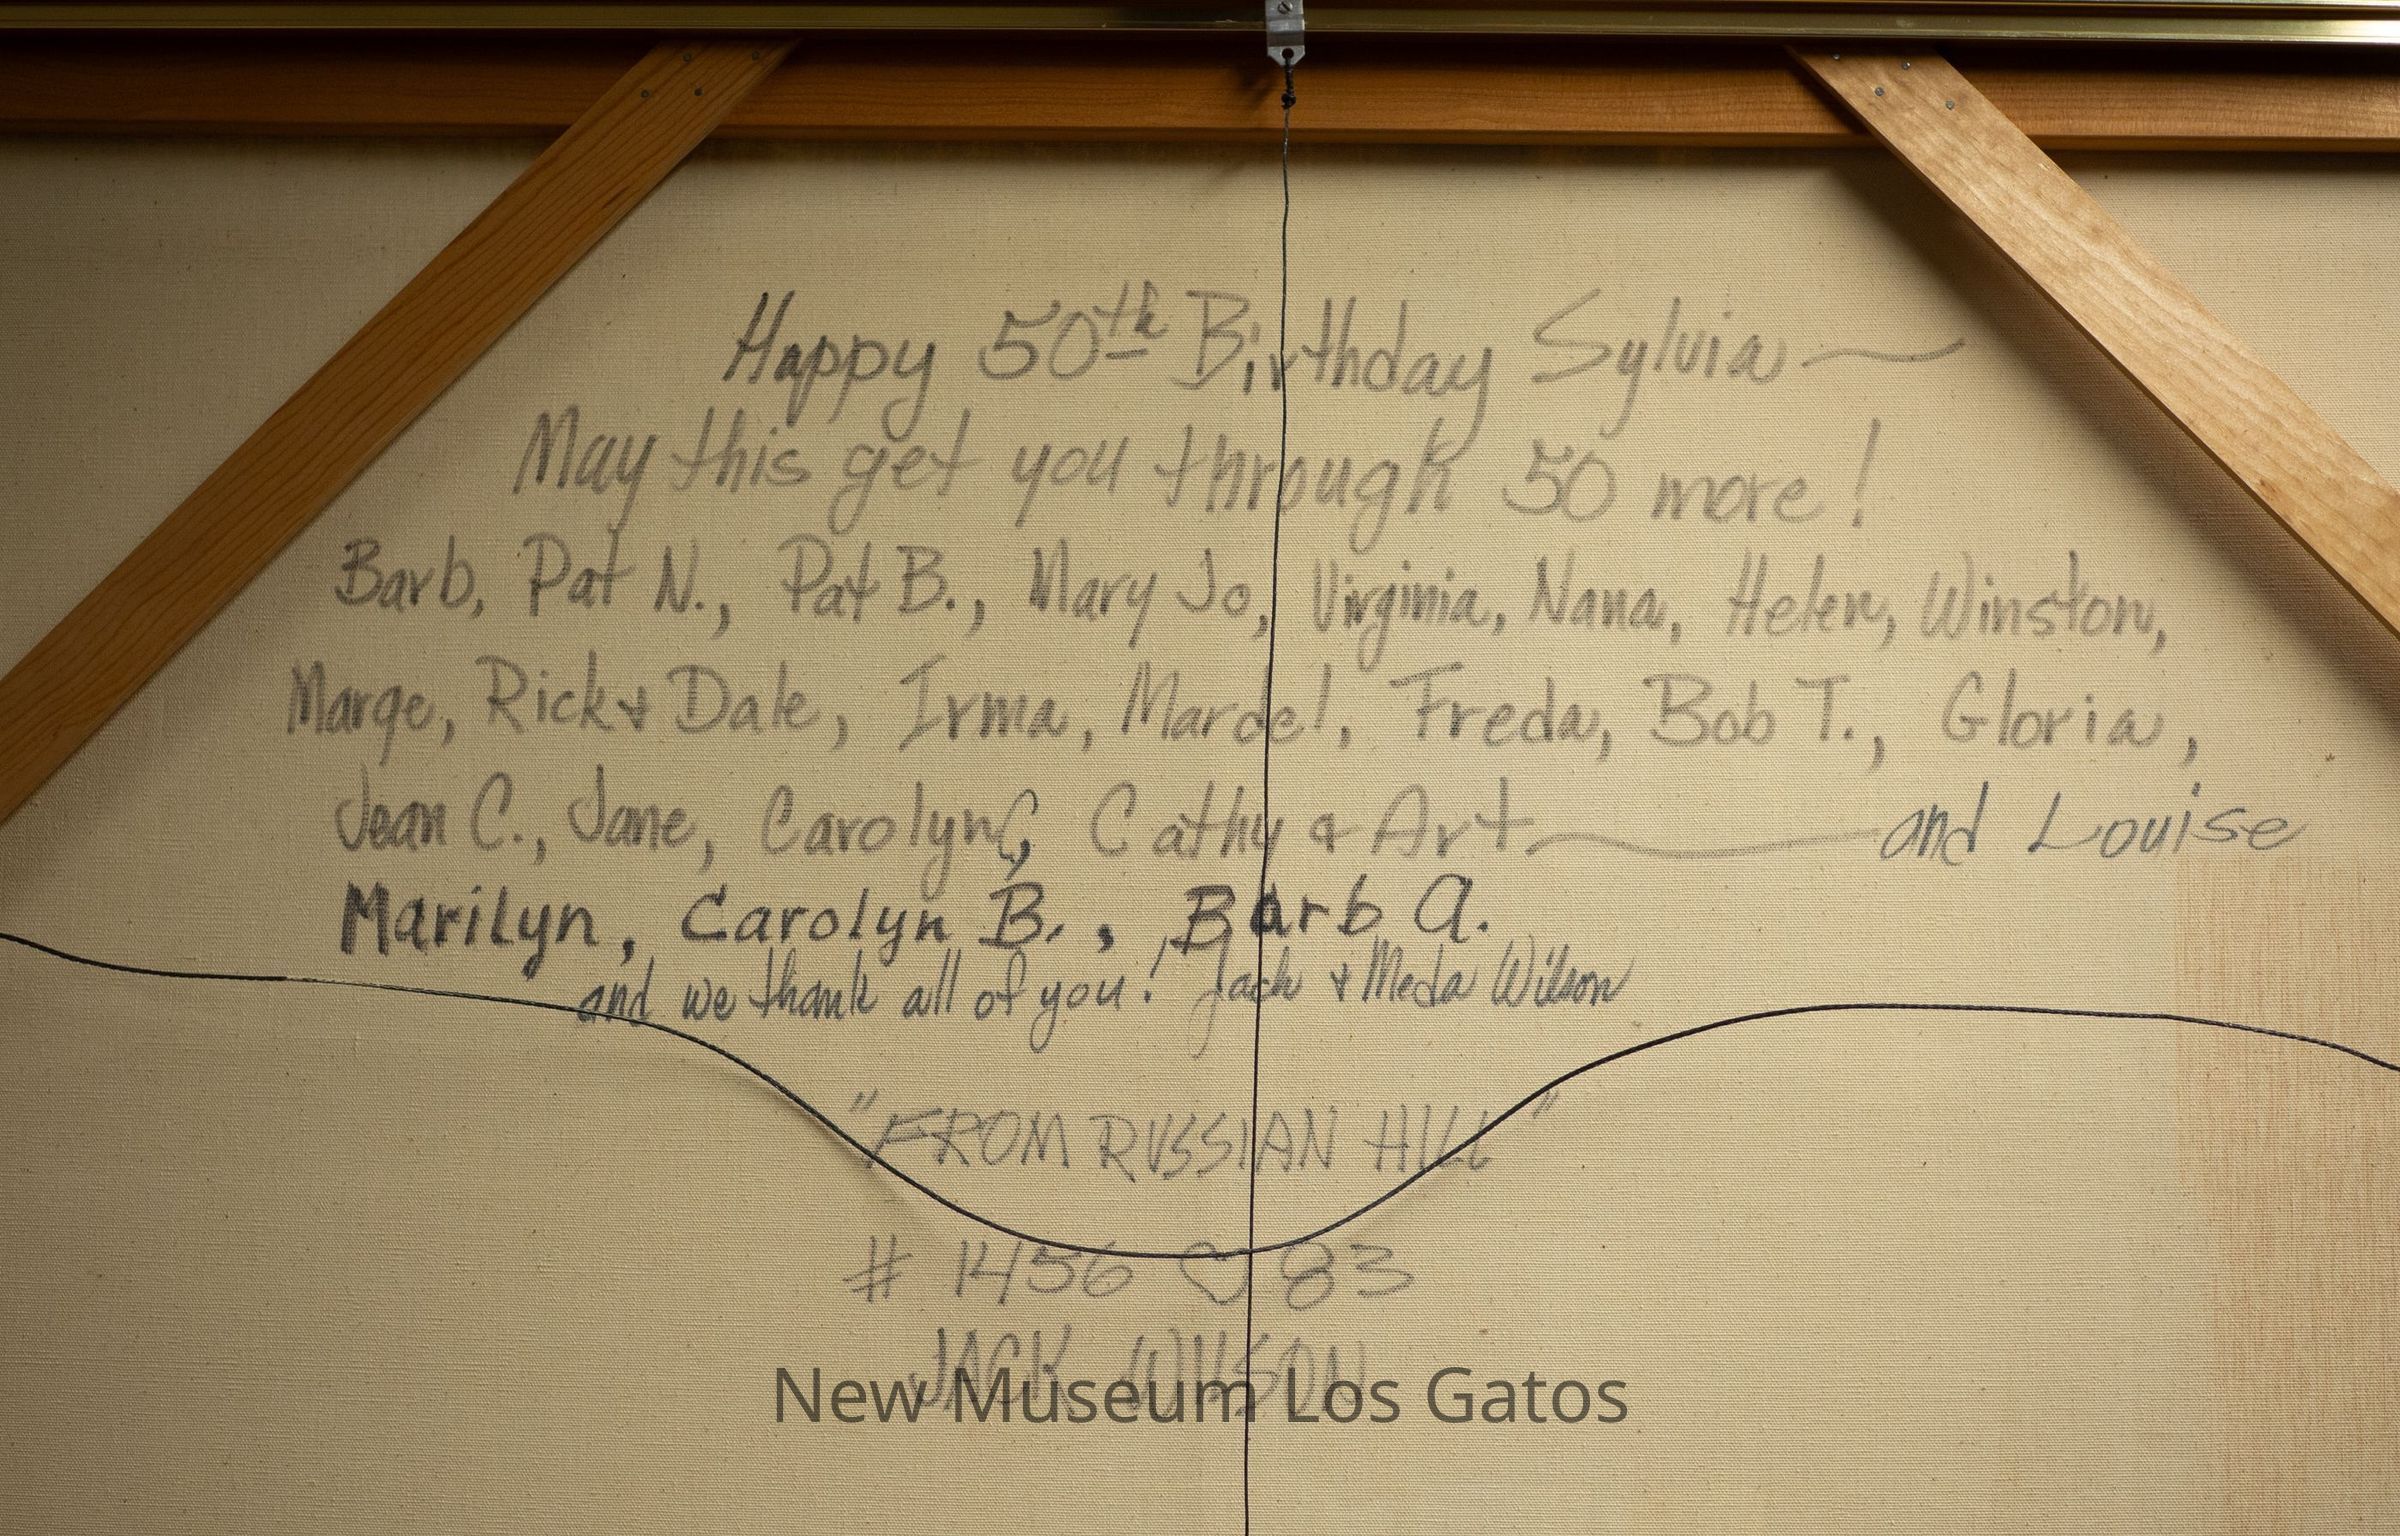 Happy 50th Birthday Sylvia —
May this get you through 50 more!
Barb, Pat N., Pat B., Mary Jo, Virginia, Nana, Helen, Winston,
Marge, Rick & Dale, Irma, Mardel, Freda, Bob T., Gloria,
Jean C., Jane, Carolyn C, Cathy & Art — and Louise
Marilyn, Carolyn B., Barb A.
and we thank all of you! Jack & Meda Wilson
"FROM RUSSIAN HILL"
# 1456 ♡ 83
JACK WILSON
New Museum Los Gatos